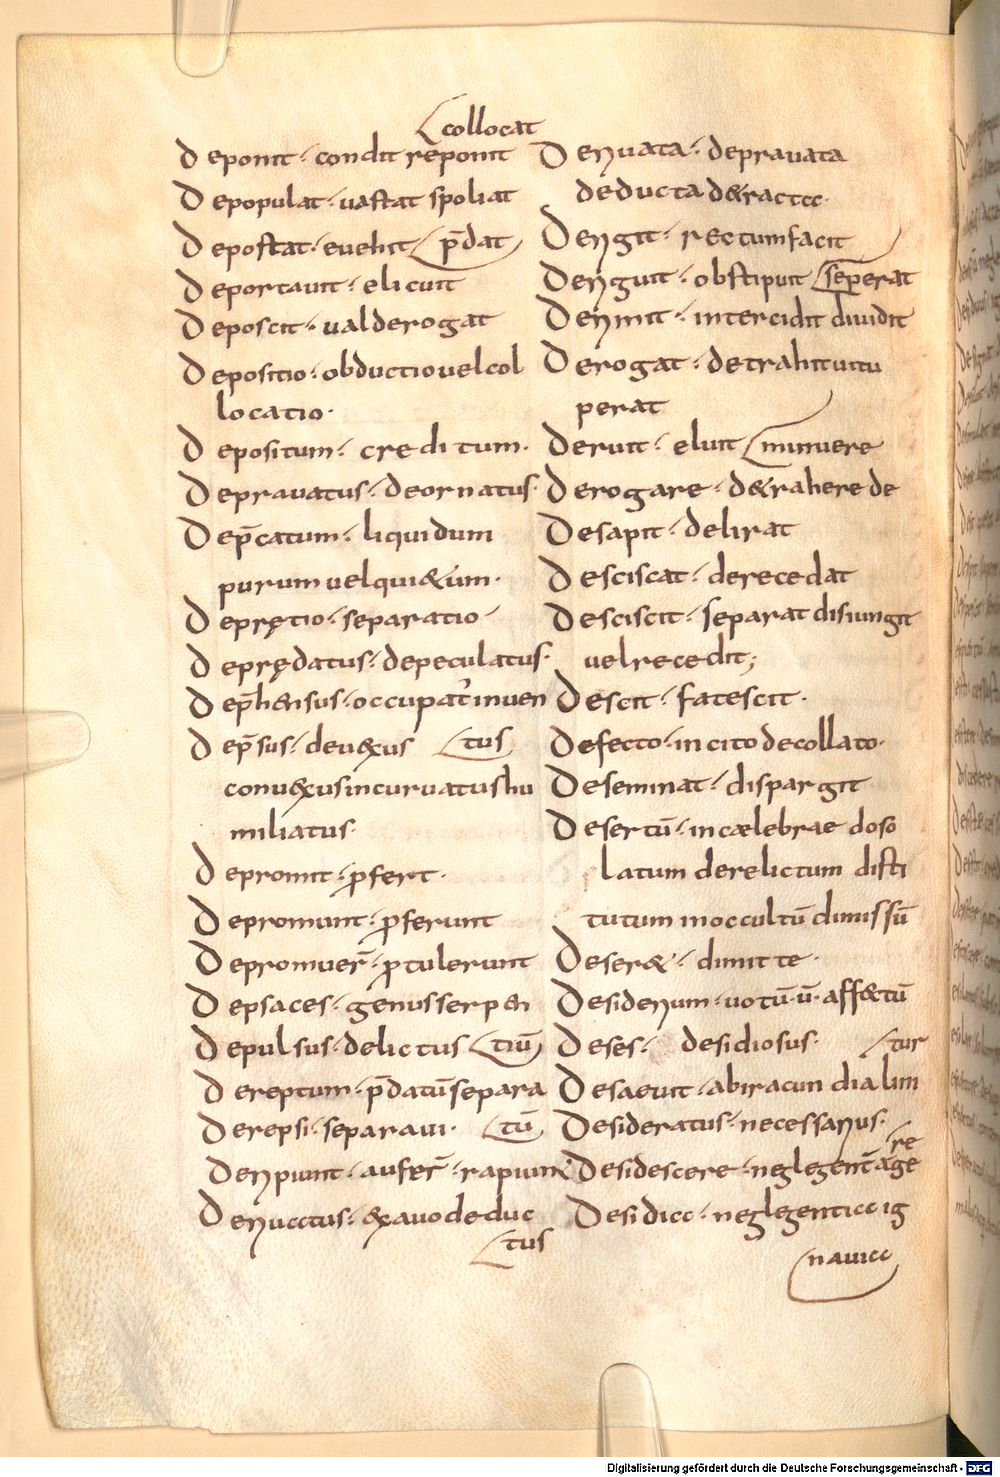 collocat
Deponit· condit reponit
Depopulat· uastat spoliat
Depostat· euehit p̄dat
Deportauit· elicuit
Deposcit· ualderogat
Depositio· obductiouelcol
locatio·
Depositum· creditum·
Deprauatus· deornatus·
Dep̄catum· liquidum
purumuelqui&um·
Deprętio· separatio
Deprędatus· depeculatus·
Dep̄hensus· occupat' inuen
Dep̄sus· deuexus tus
conuexusincuruatushu
miliatus·
Depromit· ꝓfert·
Depromunt· ꝓferunt
Depromuer̄· ꝓtulerunt
Depsaces· genusserpen
Depulsus· delictus tiū
Dereptum· p̄datūsepara
Derepsi· separaui· tū
Deripiunt· aufer̄· rapiunt
Deriuatus· exauodeduc
tus
Deriuata· deprauata
deducta d&racta·
Derigit· rectumfacit
Deriguit· obstipuit seperat
Derimit· intercidit diuidit
Derogat· detrahituitu
perat
Deruit· eluit minuere
Derogare· d&rahere de
Desapit· delirat
Desciscat· derecedat
Desciscit· separat disiungit
uelrecedit;
Descit· fatescit·
Defecto· incito decollato·
Deseminat· dispargit
Desertū· incælebrae doso
latum derelictum disti
tutum inoccultū dimissū
Deser&· dimitte·
Desiderium· uotū·ū· aff&tū
Deses· desidiosus· tur
Desaeuit· abiracundialini
Desideratus· necessarius·
re
Desidescere· neglegent̄ age
Desidia· neglegentia ig
nauia
Digitalisierung gefördert durch die Deutsche Forschungsgemeinschaft - DFG